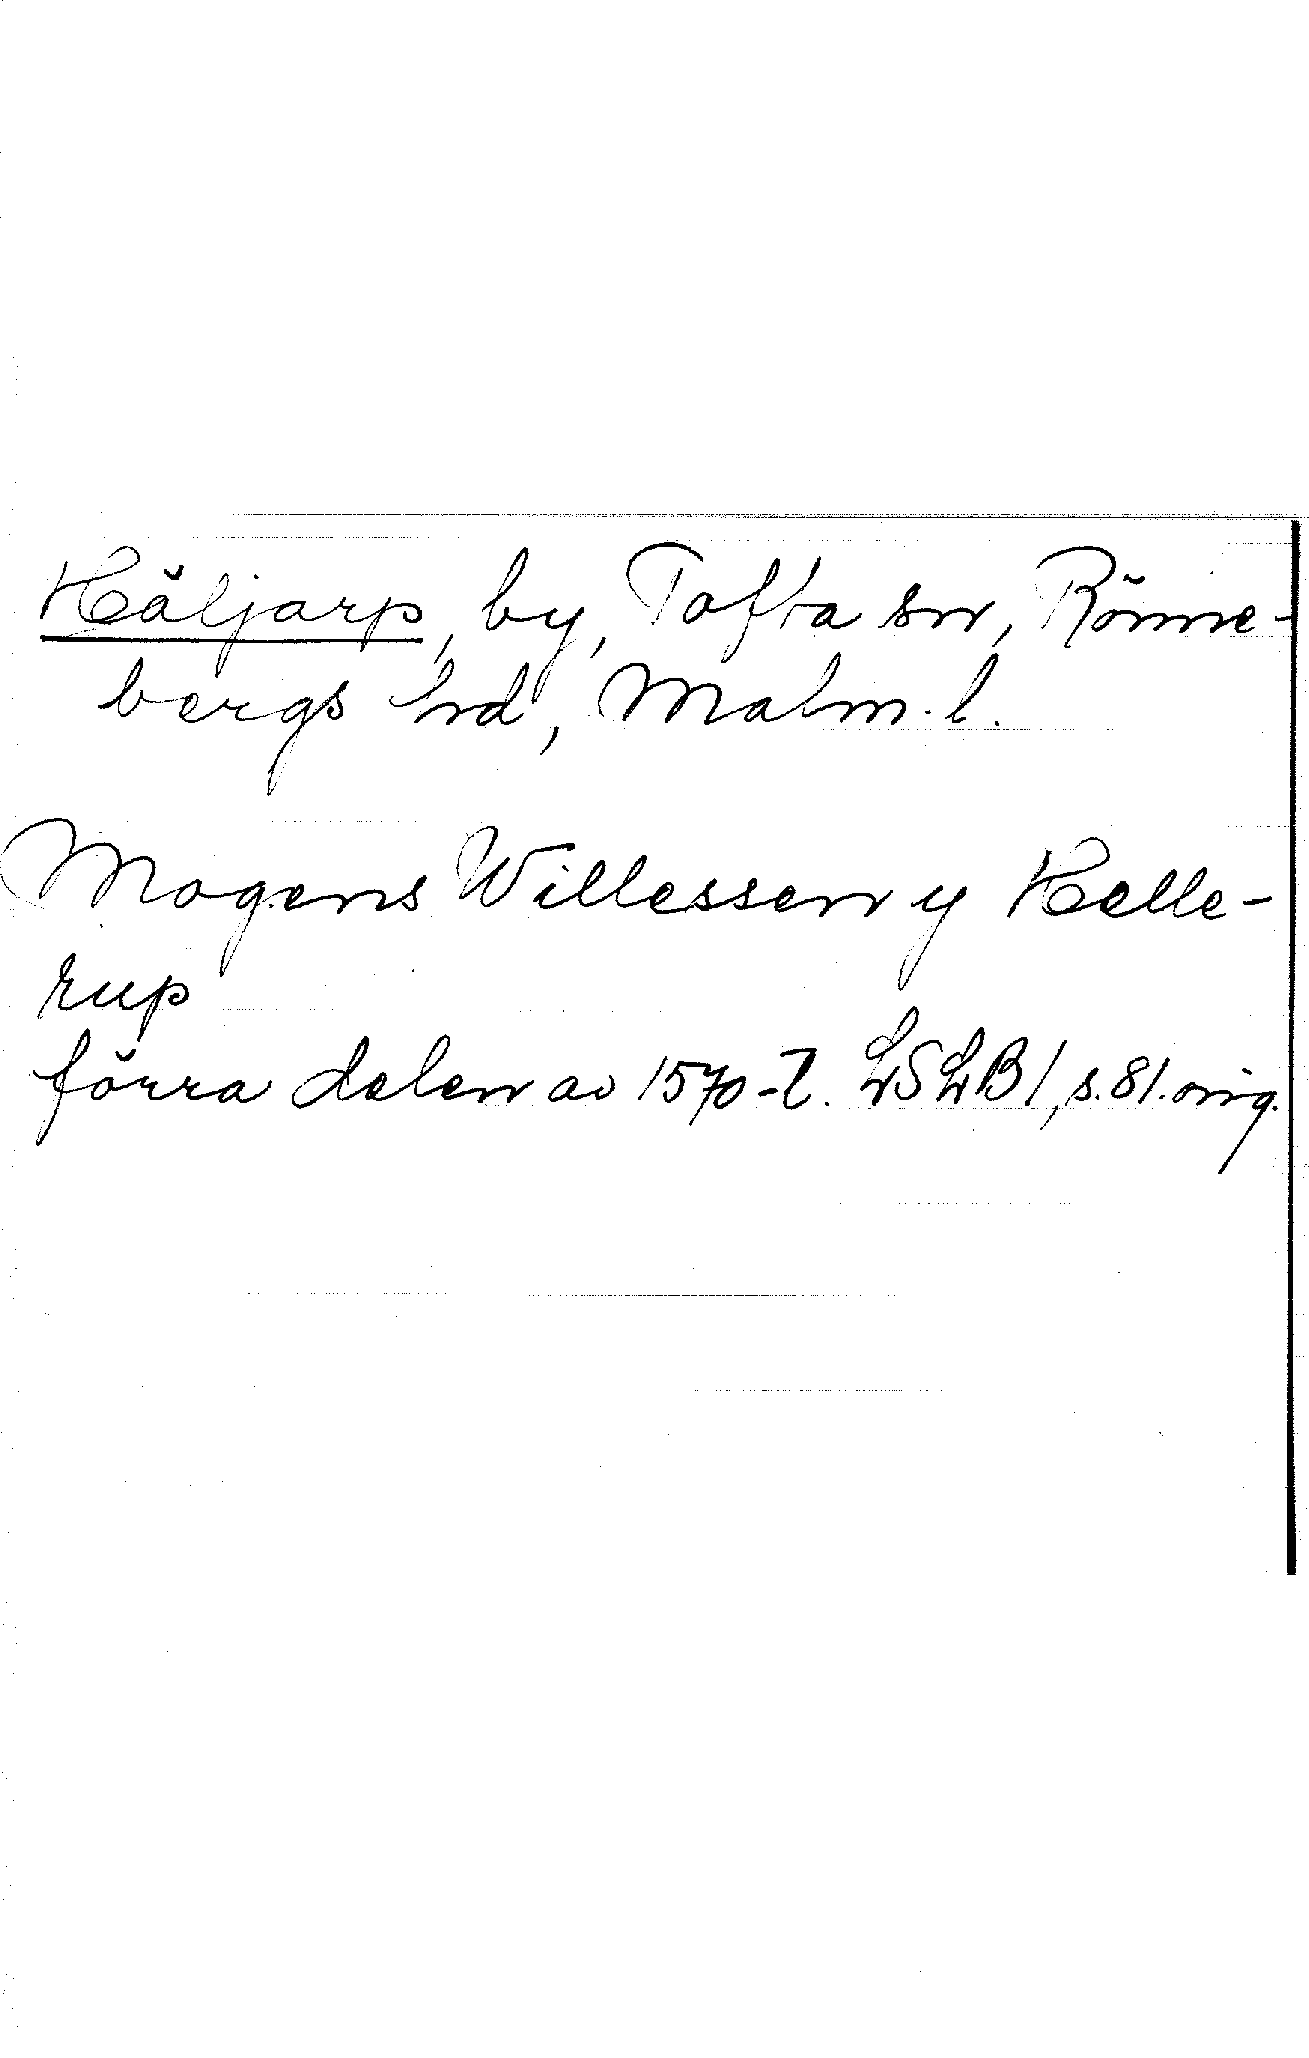 Häljarp, by, Tofta sn, Rönne-
bergs hrd, Malm. l.
Mogens Willessen y Helle-
rup
förra delen av 1570-t. LSLB 1, s. 81. orig.